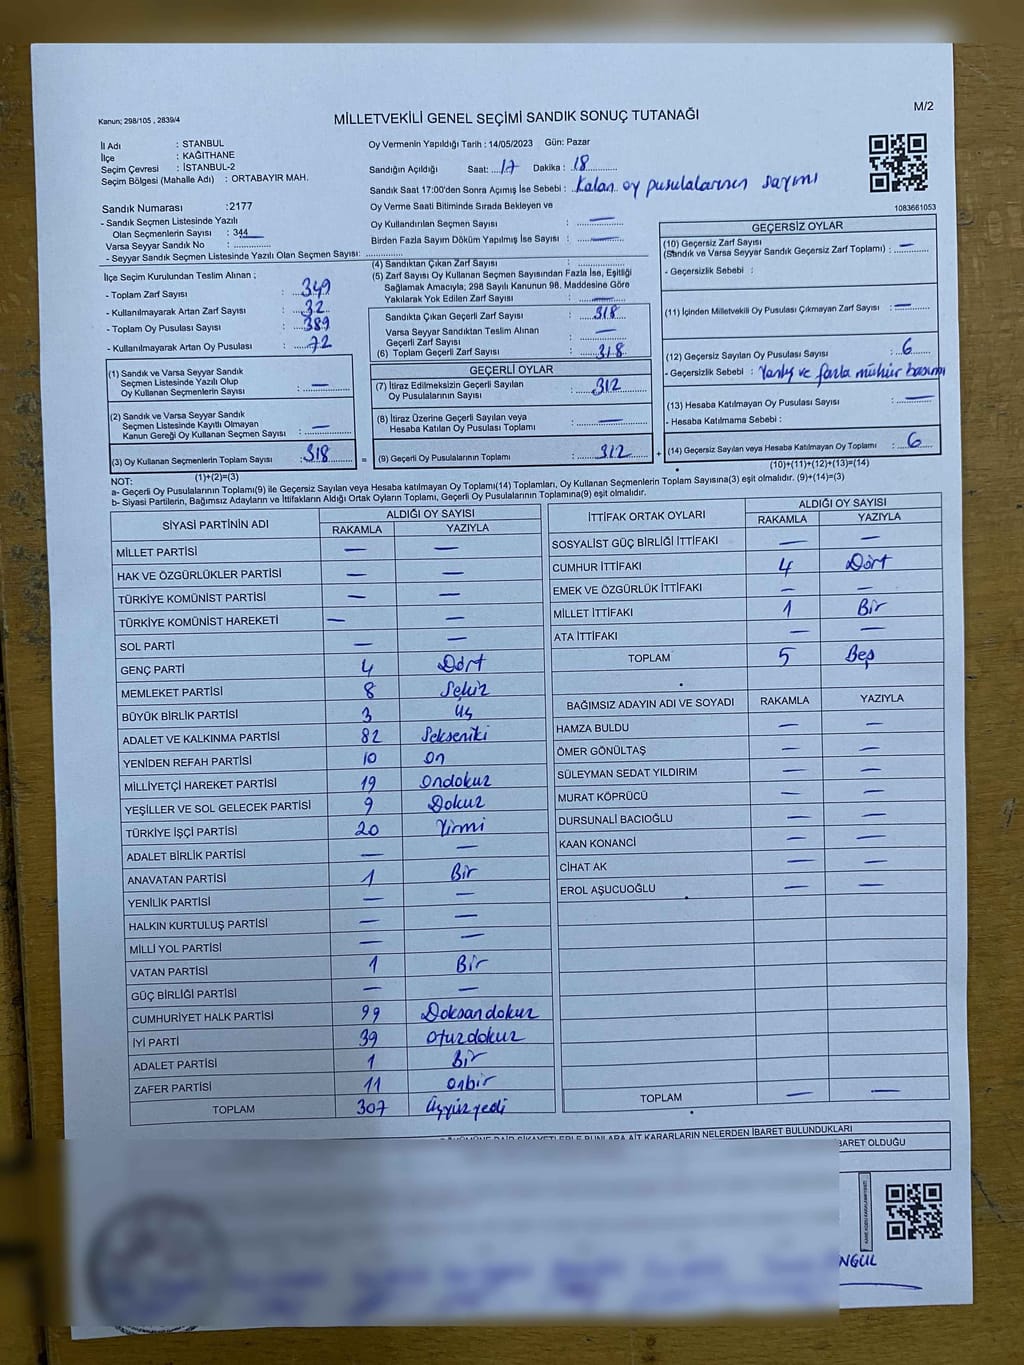 M/2
Kanun; 298/105 , 2839/4
MİLLETVEKİLİ GENEL SEÇİMİ SANDIK SONUÇ TUTANAĞI
İl Adı : STANBUL
İlçe : KAĞITHANE
Seçim Çevresi : İSTANBUL-2
Seçim Bölgesi (Mahalle Adı) : ORTABAYIR MAH.
Oy Vermenin Yapıldığı Tarih : 14/05/2023 Gün: Pazar
Sandığın Açıldığı Saat: 17 Dakika : 18
Sandık Saat 17:00'den Sonra Açımış İse Sebebi : Kalan oy pusulalarının sayımı
1083661053
Sandık Numarası :2177
- Sandık Seçmen Listesinde Yazılı
Olan Seçmenlerin Sayısı : 344
Varsa Seyyar Sandık No :
- Seyyar Sandık Seçmen Listesinde Yazılı Olan Seçmen Sayısı:
Oy Verme Saati Bitiminde Sırada Bekleyen ve
Oy Kullandırılan Seçmen Sayısı : —
Birden Fazla Sayım Döküm Yapılmış İse Sayısı : —
İlçe Seçim Kurulundan Teslim Alınan ;
- Toplam Zarf Sayısı : 349
- Kullanılmayarak Artan Zarf Sayısı : 32
- Toplam Oy Pusulası Sayısı : 389
- Kullanılmayarak Artan Oy Pusulası : 72
(1) Sandık ve Varsa Seyyar Sandık
Seçmen Listesinde Yazılı Olup
Oy Kullanan Seçmenlerin Sayısı : —
(2) Sandık ve Varsa Seyyar Sandık
Seçmen Listesinde Kayıtlı Olmayan
Kanun Gereği Oy Kullanan Seçmen Sayısı : —
(3) Oy Kullanan Seçmenlerin Toplam Sayısı : 318
(1)+(2)=(3)
(4) Sandıktan Çıkan Zarf Sayısı
(5) Zarf Sayısı Oy Kullanan Seçmen Sayısından Fazla İse, Eşitliği
Sağlamak Amacıyla; 298 Sayılı Kanunun 98. Maddesine Göre
Yakılarak Yok Edilen Zarf Sayısı : —
Sandıkta Çıkan Geçerli Zarf Sayısı : 318
Varsa Seyyar Sandıktan Teslim Alınan
Geçerli Zarf Sayısı : —
(6) Toplam Geçerli Zarf Sayısı : 318
GEÇERLİ OYLAR
(7) İtiraz Edilmeksizin Geçerli Sayılan
Oy Pusulalarının Sayısı : 312
(8) İtiraz Üzerine Geçerli Sayılan veya
Hesaba Katılan Oy Pusulası Toplamı : —
= (9) Geçerli Oy Pusulalarının Toplamı : 312 +
GEÇERSİZ OYLAR
(10) Geçersiz Zarf Sayısı
(Sandık ve Varsa Seyyar Sandık Geçersiz Zarf Toplamı) : —
- Geçersizlik Sebebi :
(11) İçinden Milletvekili Oy Pusulası Çıkmayan Zarf Sayısı : —
(12) Geçersiz Sayılan Oy Pusulası Sayısı : 6
- Geçersizlik Sebebi : Yanlış ve fazla mühür basımı
(13) Hesaba Katılmayan Oy Pusulası Sayısı : —
- Hesaba Katılmama Sebebi :
(14) Geçersiz Sayılan veya Hesaba Katılmayan Oy Toplamı : 6
(10)+(11)+(12)+(13)=(14)
NOT:
a- Geçerli Oy Pusulalarının Toplamı(9) ile Geçersiz Sayılan veya Hesaba katılmayan Oy Toplamı(14) Toplamları, Oy Kullanan Seçmenlerin Toplam Sayısına(3) eşit olmalıdır. (9)+(14)=(3)
b- Siyasi Partilerin, Bağımsız Adayların ve İttifakların Aldığı Ortak Oyların Toplamı, Geçerli Oy Pusulalarının Toplamına(9) eşit olmalıdır.
SİYASİ PARTİNİN ADI ALDIĞI OY SAYISI
RAKAMLA YAZIYLA
MİLLET PARTİSİ — —
HAK VE ÖZGÜRLÜKLER PARTİSİ — —
TÜRKİYE KOMÜNİST PARTİSİ — —
TÜRKİYE KOMÜNİST HAREKETİ — —
SOL PARTİ — —
GENÇ PARTİ 4 Dört
MEMLEKET PARTİSİ 8 Sekiz
BÜYÜK BİRLİK PARTİSİ 3 Üç
ADALET VE KALKINMA PARTİSİ 82 Sekseniki
YENİDEN REFAH PARTİSİ 10 On
MİLLİYETÇİ HAREKET PARTİSİ 19 Ondokuz
YEŞİLLER VE SOL GELECEK PARTİSİ 9 Dokuz
TÜRKİYE İŞÇİ PARTİSİ 20 Yirmi
ADALET BİRLİK PARTİSİ — —
ANAVATAN PARTİSİ 1 Bir
YENİLİK PARTİSİ — —
HALKIN KURTULUŞ PARTİSİ — —
MİLLİ YOL PARTİSİ — —
VATAN PARTİSİ 1 Bir
GÜÇ BİRLİĞİ PARTİSİ — —
CUMHURİYET HALK PARTİSİ 99 Doksandokuz
İYİ PARTİ 39 Otuzdokuz
ADALET PARTİSİ 1 Bir
ZAFER PARTİSİ 11 Onbir
TOPLAM 307 Üçyüzyedi
İTTİFAK ORTAK OYLARI ALDIĞI OY SAYISI
RAKAMLA YAZIYLA
SOSYALİST GÜÇ BİRLİĞİ İTTİFAKI — —
CUMHUR İTTİFAKI 4 Dört
EMEK VE ÖZGÜRLÜK İTTİFAKI — —
MİLLET İTTİFAKI 1 Bir
ATA İTTİFAKI — —
TOPLAM 5 Beş
BAĞIMSIZ ADAYIN ADI VE SOYADI RAKAMLA YAZIYLA
HAMZA BULDU — —
ÖMER GÖNÜLTAŞ — —
SÜLEYMAN SEDAT YILDIRIM — —
MURAT KÖPRÜCÜ — —
DURSUNALİ BACIOĞLU — —
KAAN KONANCİ — —
CİHAT AK — —
EROL AŞUCUOĞLU — —
TOPLAM — —
KARARLARIN NELERDEN İBARET BULUNDUKLARI
İBARET OLDUĞU
NGÜL